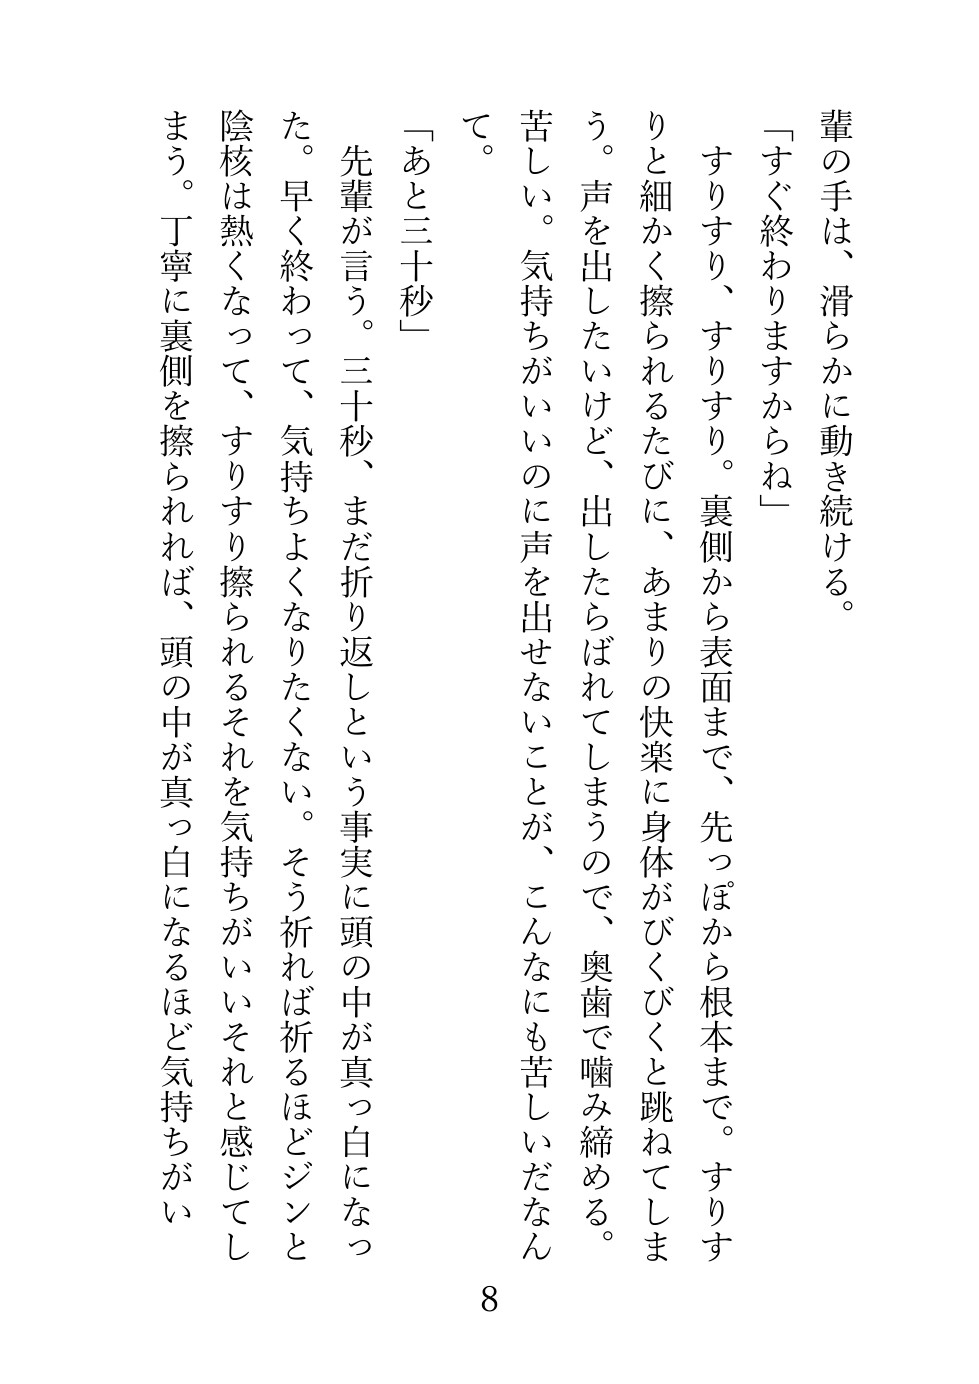 輩の手は、滑らかに動き続ける。
「すぐ終わりますからね」
すりすり、すりすり。裏側から表面まで、先っぽから根本まで。すりす
りと細かく擦られるたびに、あまりの快楽に身体がびくびくと跳ねてしま
う。声を出したいけど、出したらばれてしまうので、奥歯で噛み締める。
苦しい。気持ちがいいのに声を出せないことが、こんなにも苦しいだなん
て。
「あと三十秒」
先輩が言う。三十秒、まだ折り返しという事実に頭の中が真っ白になっ
た。早く終わって、気持ちよくなりたくない。そう祈れば祈るほどジンと
陰核は熱くなって、すりすり擦られるそれを気持ちがいいそれと感じてし
まう。丁寧に裏側を擦られれば、頭の中が真っ白になるほど気持ちがい
8